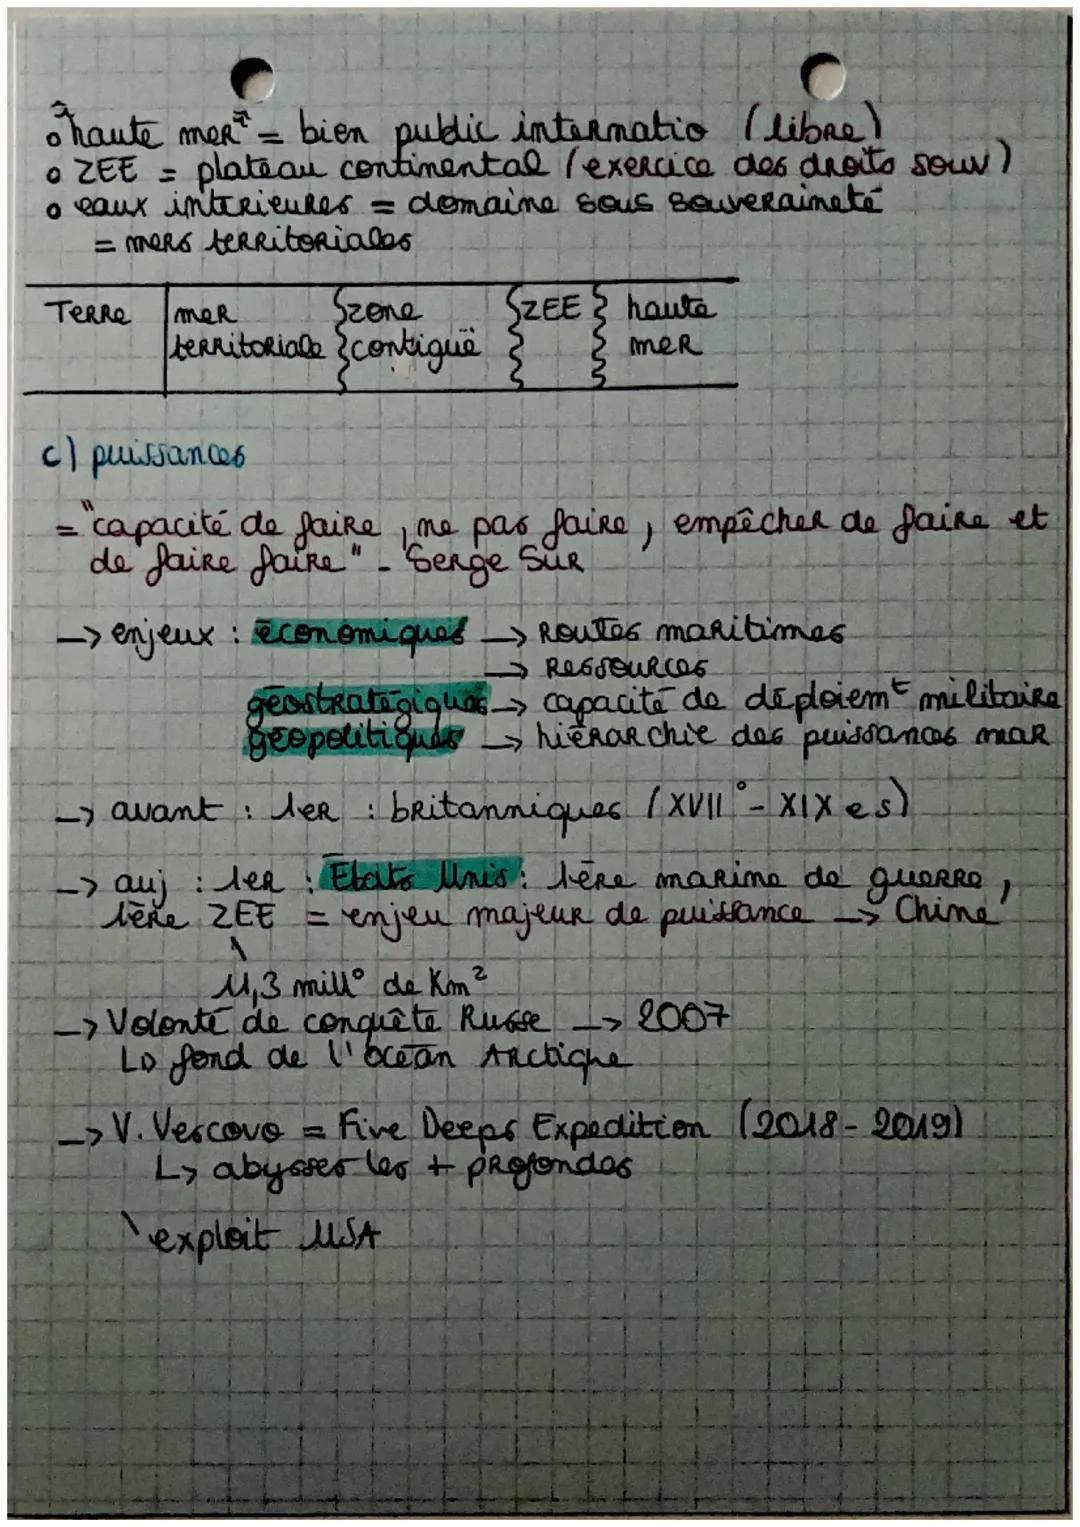 "haute mer" = bien public internatio (libre)
ZEE = plateau continental (exercice des droits souv)
eaux interieures = domaine sous souveraineté
= mers territoriales
Terre mer zone ZEE haute
territoriale contiguë mer
c) puissances
= "capacité de faire, ne pas faire, empêcher de faire et
de faire faire" - Serge Sur
-> enjeux : économiques -> Routes maritimes
-> Ressources
géostratégiques -> capacité de déploiemt militaire
géopolitiques -> hiérarchie des puissances mar
-> avant : 1er : britanniques (XVII° - XIX e s)
-> auj : 1er : Etats Unis : 1ère marine de guerre,
1ère ZEE = enjeu majeur de puissance -> Chine
11,3 mill° de Km²
-> Volonté de conquête Russe -> 2007
L> fond de l'océan Arctique
-> V. Vescovo = Five Deeps Expedition (2018 - 2019)
L> abysses les + profondes
\ exploit USA